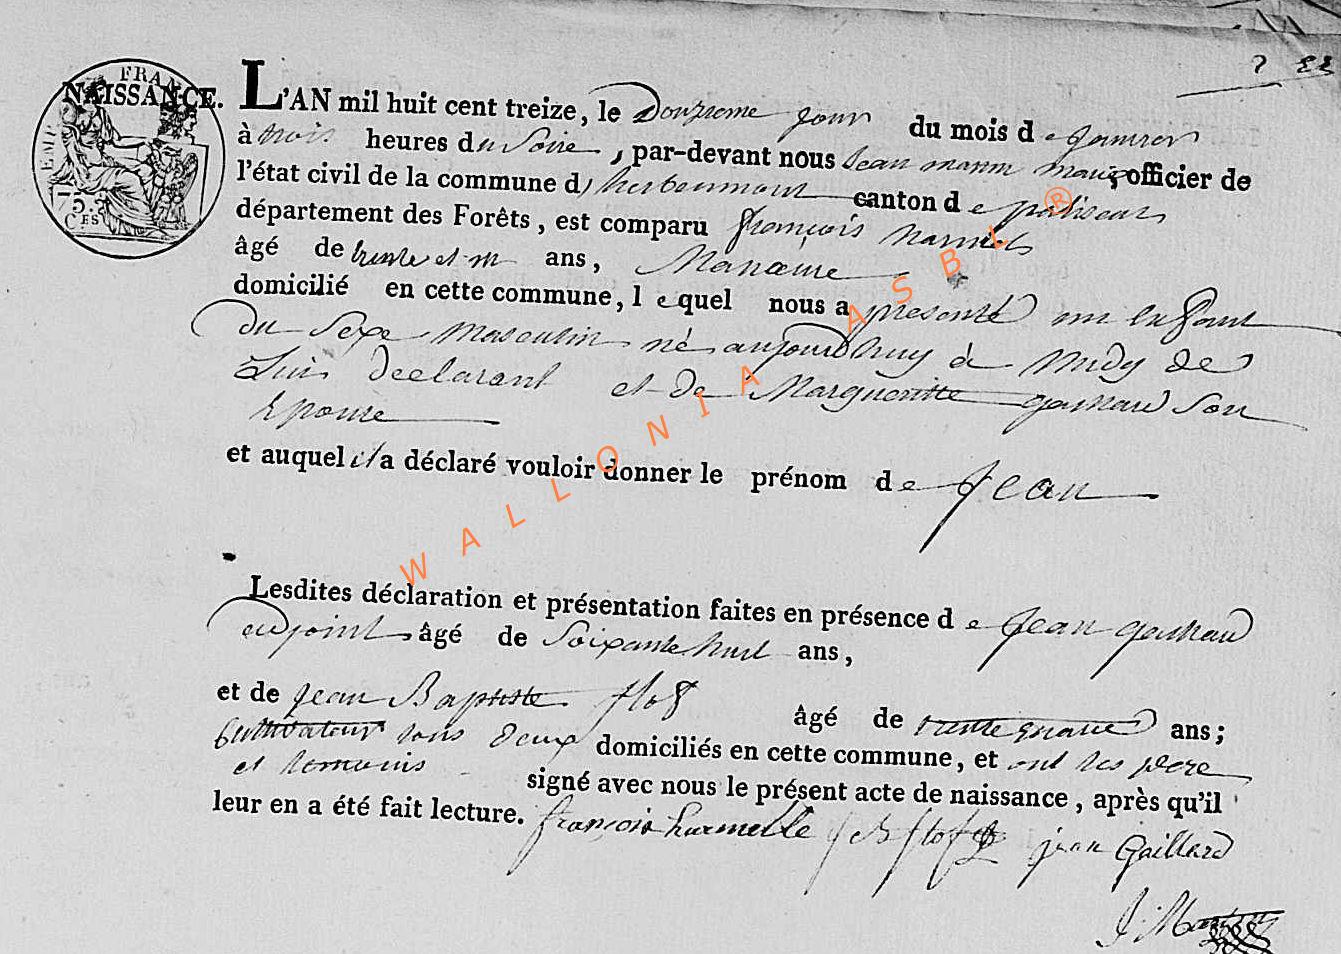 FRAN
EMP
75.
C.ES
NAISSANCE.
L'AN mil huit cent treize, le Douzieme jour du mois de janvier
à trois heures du Soire, par-devant nous Jean maire, officier de
l'état civil de la commune d'herbeumont canton de paliseux
département des Forêts, est comparu françois
âgé de trente et un ans, Manœuvre
domicilié en cette commune, lequel nous a presenté un Enfant
du Sexe Masculin né aujourdhuy à Midy de
Luis Declarant et de Margueritte gaillard Son
Epouse
et auquel il a déclaré vouloir donner le prénom de Jean
Lesdites déclaration et présentation faites en présence de Jean gaillard
adjoint âgé de Soixante huit ans,
et de Jean Baptiste âgé de trente quatre ans;
Cultivateur tous deux domiciliés en cette commune, et ont les pere
et temoins signé avec nous le présent acte de naissance, après qu'il
leur en a été fait lecture. françois jean Gaillard
WALLONIA ASBL ®